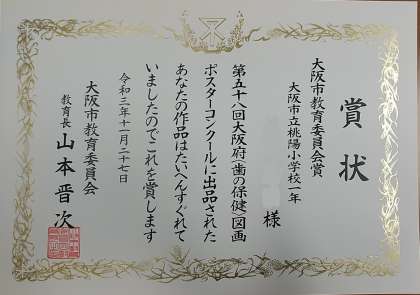 賞状
大阪市教育委員会賞
大阪市立桃陽小学校一年
様
第五十八回大阪府〈歯の保健〉図画
ポスターコンクールに出品された
あなたの作品はたいへんすぐれて
いましたのでこれを賞します
令和三年十一月二十七日
大阪市教育委員会
教育長 山本晋次